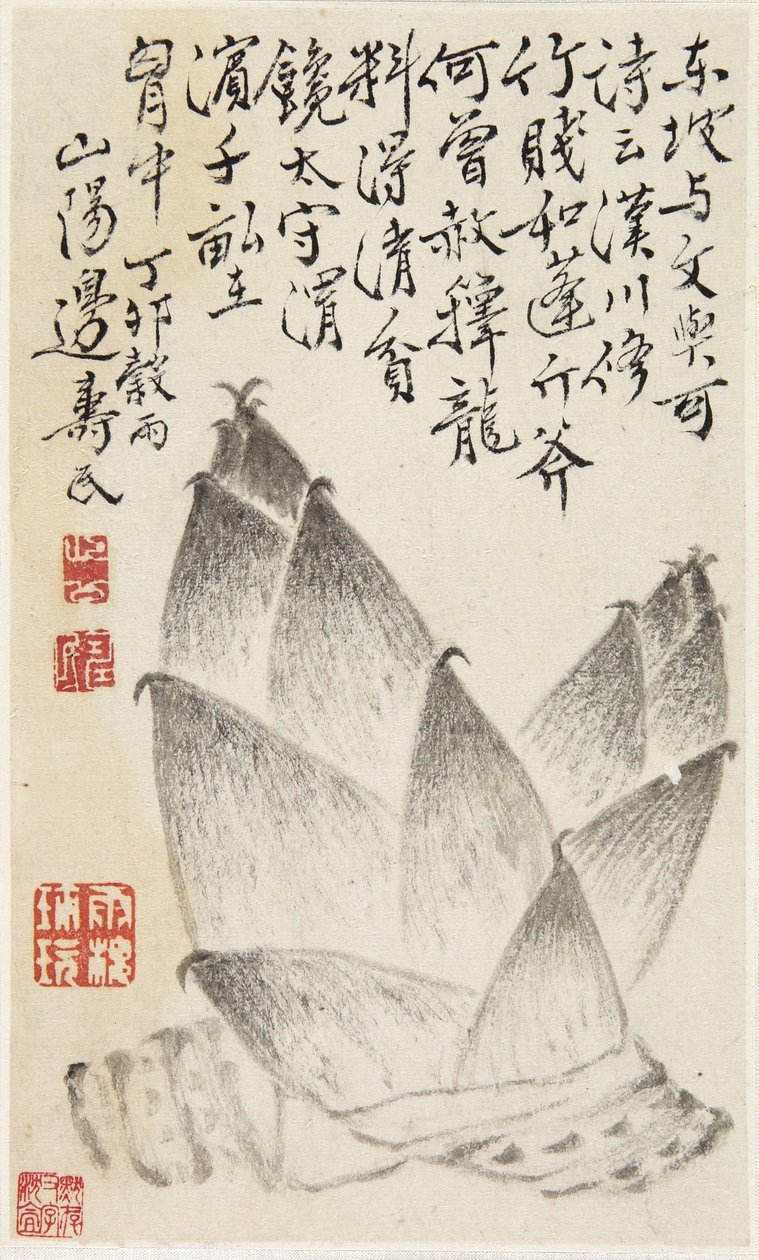 东坡与文與可
诗云漢川修
竹賤如蓬斤斧
何曾赦籜龍
料得清貧
饞太守渭
濱千畝在
胷中 丁卯穀雨
山陽邊壽民